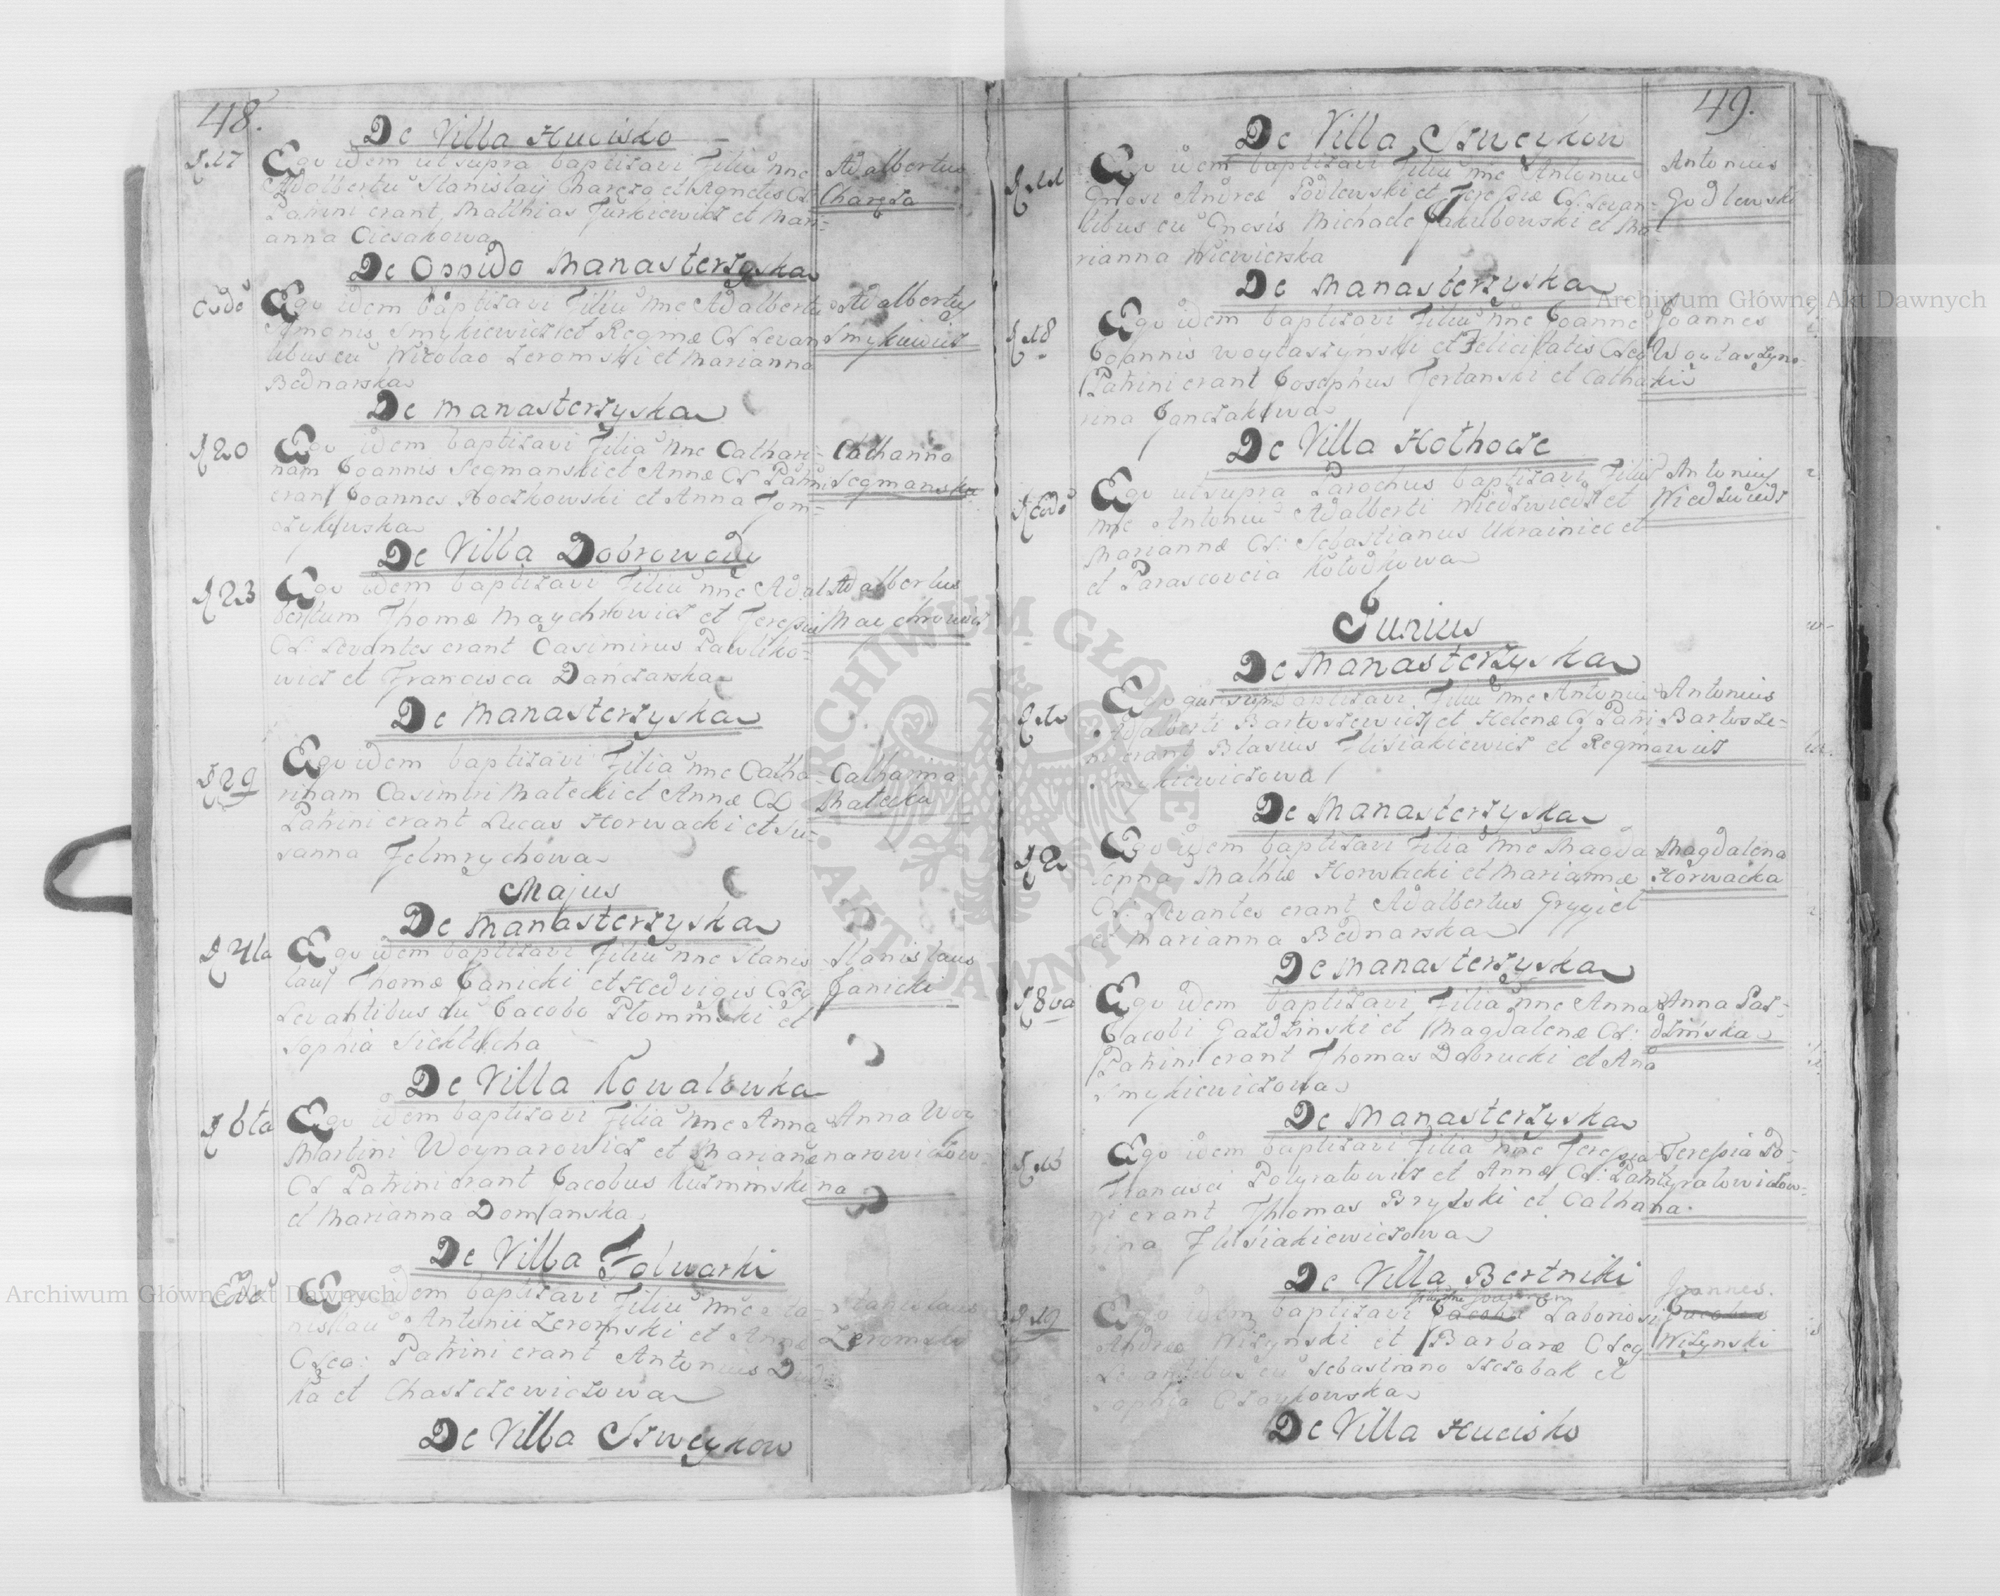 48.
De Villa Hucisko
17
Ego idem ut supra baptizavi Filiũ nne
Adalbertũ Stanislaij Charęza et Agnetis CL
Patrini erant, Matthias Turkiewicz et Mari-
anna Ciesakowa
Adalbertus
Charęza
De Oppido Manasterzyska
Ego idem baptizavi Filiũ nne Adalbertũ
Simonis Smykiewicz et Reginæ CL Levan
tibus cũ Nicolao Zeromski et Marianna
Bednarska
Adalbertus
Smykiewicz
De Manasterzyska
20
Ego idem baptizavi Filiã nne Cathari-
nam Joannis Segmanski et Annæ CL Patrini
erant Joannes Koczkowski et Anna Tom-
Catharina
Segmanska
De Villa Dobrowody
23
Ego idem baptizavi Filiũ nne Adal
bertum Thomæ Maychrowicz et Teresiæ
CL Levantes erant Casimirus Pawliko-
wicz et Francisca Dańczarska
Adalbertus
Maychrowicz
De Manasterzyska
29
Ego idem baptizavi Filiã nne Catha-
rinam Casimiri Małecki et Annæ CL
Patrini erant Lucas Horwacki et Su-
sanna Felmrychowa
Catharina
Małecka
Majus
De Manasterzyska
4ta
Ego idem baptizavi Filiũ nne Stanis
lauſ Thomæ Janicki et Hedvigis CLeg
Levantibus cũ Jacobo Płomiński et
Sophia
Stanislaus
Janicki
De Villa Kowalowka
6ta
Ego idem baptizavi Filiã nne Anna
Martini Woynarowicz et Marianæ
CL Patrini erant Jacobus Kuzminski
et Marianna Domſanska
Anna Woy
narowiczow
na
De Villa Folwarki
Ego idem baptizavi Filiũ nne Sta-
nislaũ Antonii Zeromski et Annæ
CLeg: Patrini erant Antonius Dud-
ka et Chaszczewiczowa
Stanislaus
Zeromski
De Villa Szweykow
49.
De Villa Szweykow
11
Ego idem baptizavi Filiũ nne Antoniũ
Gnrosi Andreæ Godlewski et Teresiæ CL: Levan-
tibus cũ Gnosis Michaele Jakubowski et Ma-
rianna Wiewierska
Antonius
Godlewski
De Manasterzyska
18
Ego idem baptizavi Filiũ nne Joanne
Joannis Woytaszynski et Felicitatis CLeg
Patrini erant Josephus Ferłanski et Catha
rina Janczakowa
Joannes
Woytaszyns-
ki
De Villa Hothocze
Ego ut supra Parochus baptizavi Filiũ
nne Antoniũ Adalberti Niedzwiedz et
Mariannæ CL: Sebastianus Ukrainiec et
et Parascoveia Kołodkowa
Antonius
Niedzwiedz
Junius
De Manasterzyska
Ego qui supra baptizavi Filiũ nne Antoniũ
Adalberti Bartoszewicz et Helenæ CL Patri
ni erant Blasius Flisiakiewicz et Regina
Smykiewiczowa
Antonius
Bartosze-
wicz
De Manasterzyska
2
Ego idem baptizavi Filiã nne Magda
lenna Mathiæ Horwacki et Mariannæ
CL: Levantes erant Adalbertus Grygiel
et Marianna Bednarska
Magdalena
Horwacka
De Manasterzyska
8va
Ego idem baptizavi Filiã nne Anna
Jacobi Gazdzinski et Magdalenæ CL:
Patrini erant Thomas Dobrucki et Anã
Smykiewiczowa
Anna Gaz-
dzińska
De Manasterzyska
Ego idem baptizavi Filiã nne Teresia
Francisci Potyratowicz et Annæ CL: Patri
ni erant Thomas Brylski et Catha
rina Flisiakiewiczowa
Teresia Po-
tyratowiczow-
na.
De Villa Bertniki
19
Ego idem baptizavi Jacobũ Laboriosi
Andreæ Wiżynski et Barbaræ CLeg
Levantibus cũ Sebastiano Szczobak et
Sophia Czaykowska
Joannes.
Jacobus
Wiżynski
De Villa Hucisko
Archiwum Główne Akt Dawnych
Archiwum Główne Akt Dawnych
ARCHIWUM GŁÓWNE · AKT DAWNYCH ·